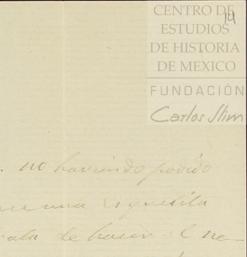 14
CENTRO DE
ESTUDIOS
DE HISTORIA
DE MEXICO
FUNDACIÓN
Carlos Slim
no haviendo podido
una esquelita
de hacer el